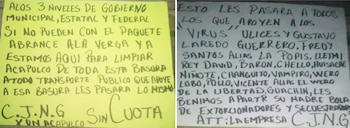 ALOS 3 NIVELES DE GOBIERNO
MUNICIPAL, ESTATAL Y FEDERAL
SI NO PUEDEN CON EL PAQUETE
ABRANCE ALA VERGA Y A
ESTAMOS AQUI PARA LIMPIAR
ACAPULCO DE TODA ESTA BASURA
A TODA TRANSPORTE PUBLICO QUE APOYE
A ESA BASURA LES PASARA LO MISMO
C.J.N.G SIN CUOTA
X UN ACAPULCO
ESTO LES PASARA A TODOS
LOS QUE APOYEN A LOS
"VIRUS" ULICES Y GUSTAVO
LAREDO GUERRERO, FREDY
SANTOS ALIAS LA TOPIS, ELEIM
REY DAVID, DARON, CHELLO, HUASACHE
NIÑOTE, CHANGUITO, VAMPIRO, WERO
LOBO, PULLO, VICENTE ALIAS EL WERO
DE LA LIBERTAD, GUACHIN, LES
BENIMOS A PARTIR SU MADRE BOLA
DE EXTORCIONADORES Y SECUESTRADORES
ATT: LA EMPRESA C.J.N.G